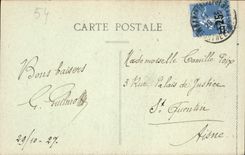 54
CARTE POSTALE
Mademoiselle Camille
3 Rue Palais de Justice
St Quentin
Aisne
Bons baisers
29/10-27.